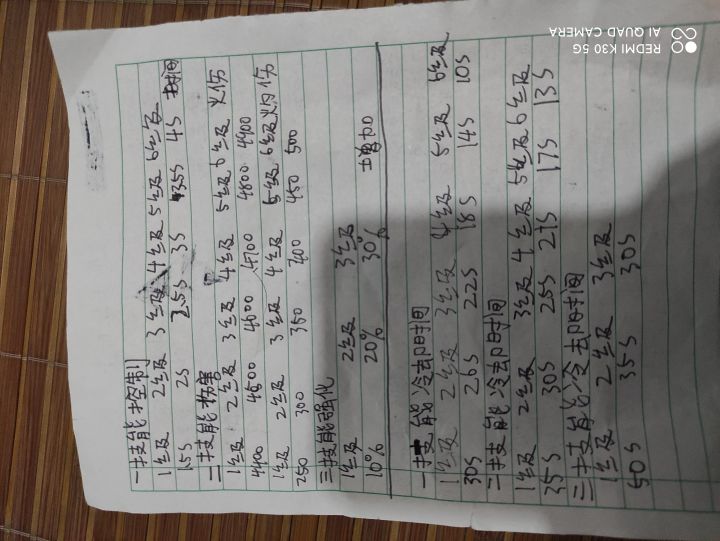 一技能控制
1级 2级 3级 4级 5级 6级 时间
1.5S 2S 2.5S 3S 3.5S 4S
二技能伤害
1级 2级 3级 4级 5级 6级 火伤
4400 4500 4600 4700 4800 4900
1级 2级 3级 4级 5级 6级 灼伤
250 300 350 400 450 500
三技能强化
1级 2级 3级
10% 20% 30% 增加
一技能冷却时间
1级 2级 3级 4级 5级 6级
30S 26S 22S 18S 14S 10S
二技能冷却时间
1级 2级 3级 4级 5级 6级
35S 30S 25S 21S 17S 13S
三技能冷却时间
1级 2级 3级
50S 35S 30S
REDMI K30 5G
AI QUAD CAMERA